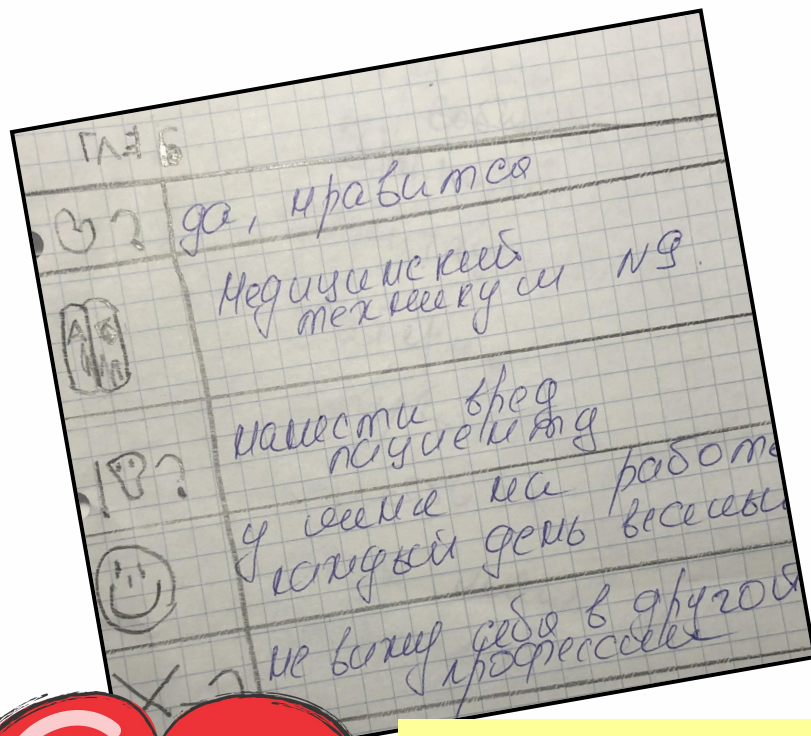 ГЛЕБ
?
да, нравится
Медицинский
техникум №9.
?
нанести вред
пациенту
у меня на работе
каждый день веселый
?
не вижу себя в другой
профессии